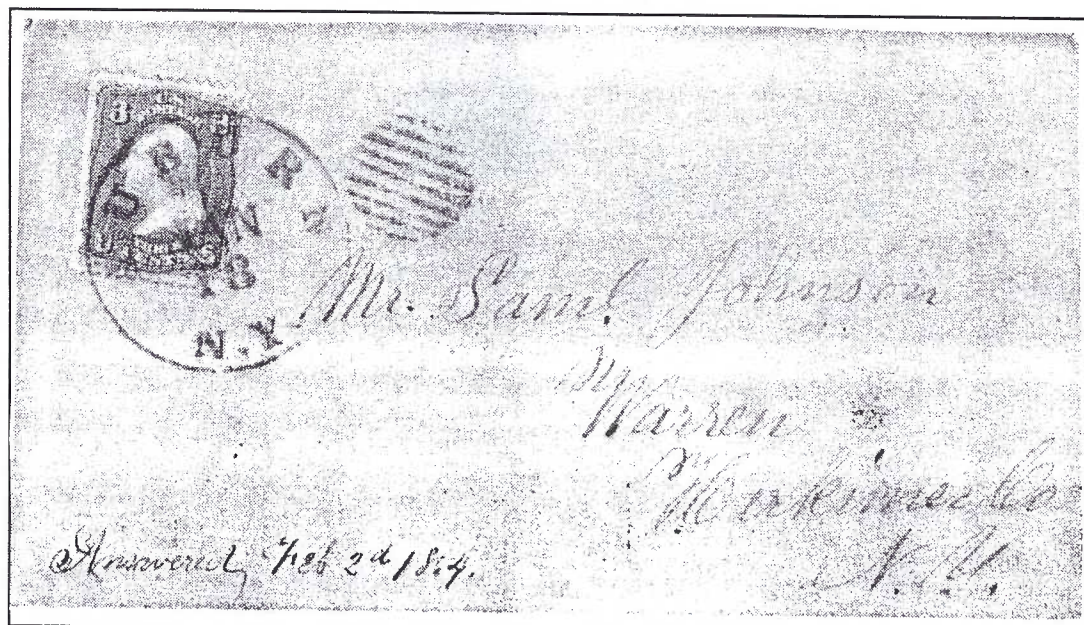 3 3
U S
18
N.Y.
Mr. Saml. Johnson
Warren
Herkimer Co
N.Y.
Answered Feb 2d 1864.